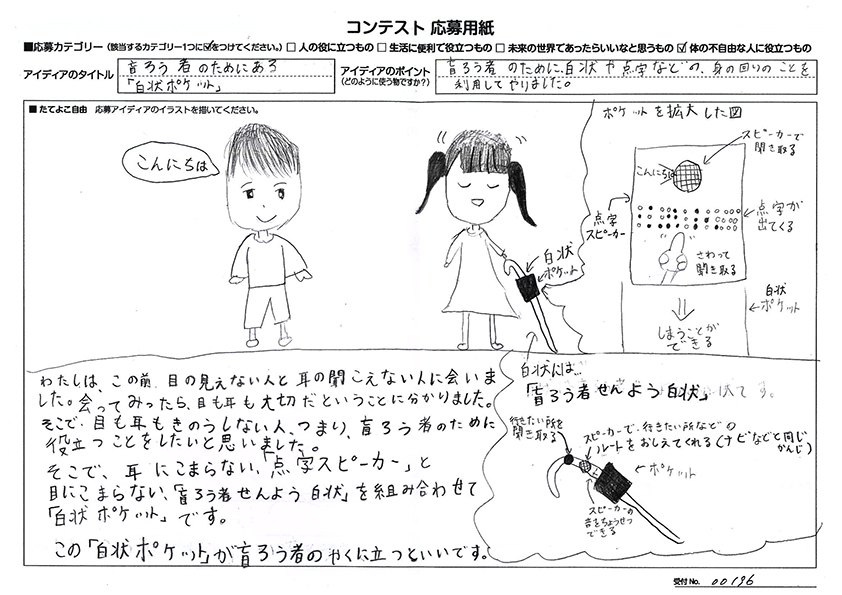 コンテスト 応募用紙
■応募カテゴリー (該当するカテゴリー1つに☑をつけてください。) □ 人の役に立つもの □ 生活に便利で役立つもの □ 未来の世界であったらいいなと思うもの ☑ 体の不自由な人に役立つもの
アイディアのタイトル
盲ろう者のためにある
「白状ポケット」
アイディアのポイント
(どのように使う物ですか?)
盲ろう者のために、白状や点字などの、身の回りのことを
利用してやりました。
■たてよこ自由 応募アイディアのイラストを描いてください。
こんにちは
白状
ポケット
ポケットを拡大した図
スピーカーで
聞き取る
こんにちは
点字
スピーカー
点字が
出てくる
さわって
聞き取る
白状
ポケット
しまうことが
できる
わたしは、この前 目の見えない人と 耳の聞こえない人に会いま
した。会ってみったら、目も耳も大切だということに分かりました。
そこで、目も耳もきのうしない人、つまり、盲ろう者のために
役立つことをしたいと思いました。
そこで、耳にこまらない、「点字スピーカー」と
目にこまらない、「盲ろう者せんよう白状」を組み合わせて
「白状ポケット」です。
この「白状ポケット」が盲ろう者のやくに立つといいです。
白状には…
「盲ろう者せんよう白状」 です。
行きたい所を
聞き取る
スピーカーで、行きたい所などの
ルートをおしえてくれる(ナビなどと同じ
かんじ)
ポケット
スピーカーの
音をちょうせつ
できる
受付No. 00196